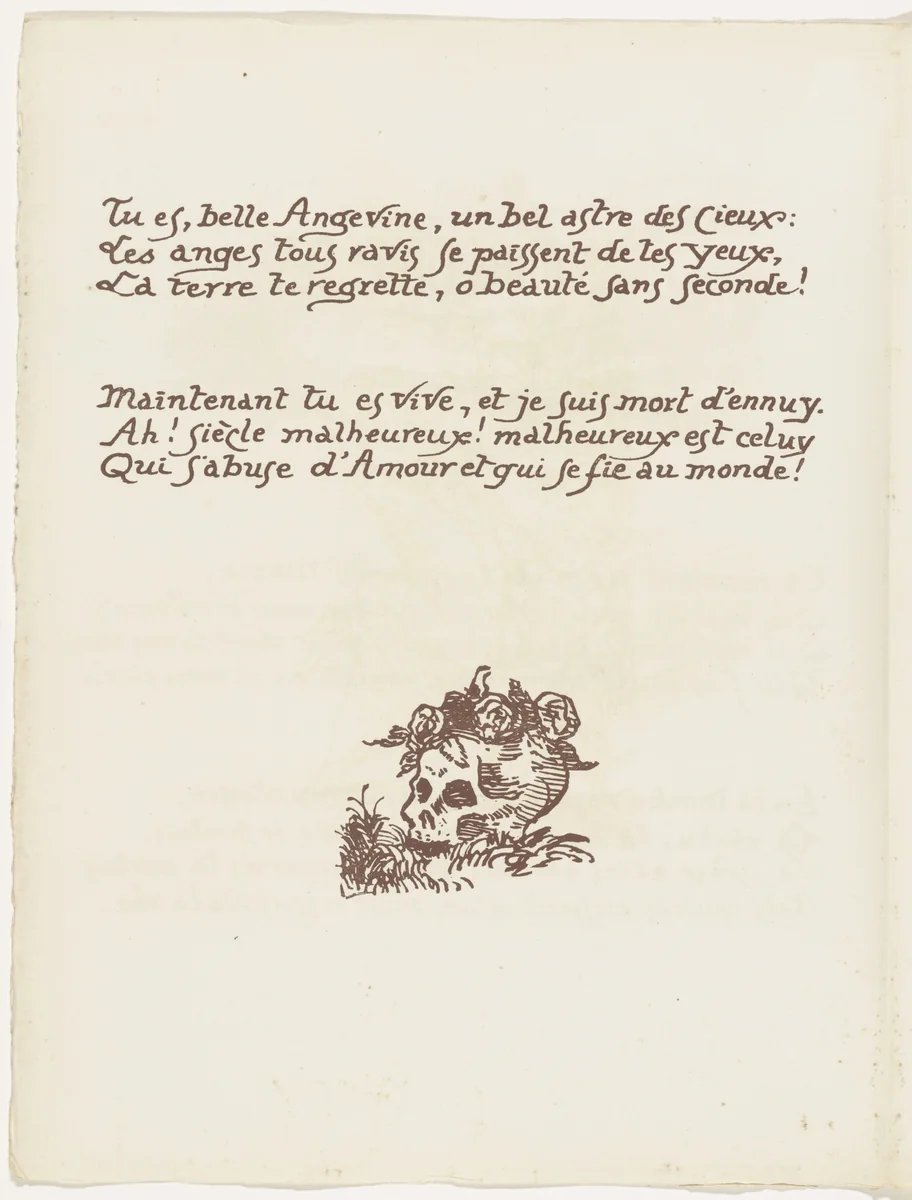 Tu es, belle Angevine, un bel astre des Cieux:
Les anges tous ravis se paissent de tes yeux,
La terre te regrette, o beauté sans seconde!
Maintenant tu es vive, et je suis mort d'ennuy.
Ah! siècle malheureux! malheureux est celuy
Qui s'abuse d'Amour et qui se fie au monde!